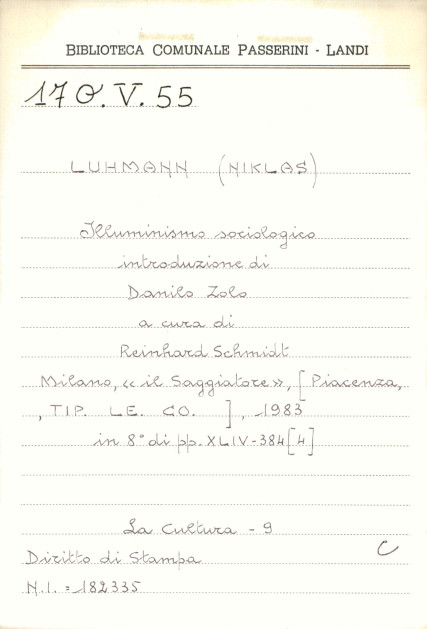 BIBLIOTECA COMUNALE PASSERINI - LANDI
170.V.55
LUHMANN (NIKLAS)
Illuminismo sociologico
introduzione di
Danilo Zolo
a cura di
Reinhard Schmidt
Milano, «il Saggiatore», [Piacenza,
, TIP. LE. CO. ], 1983
in 8° di pp. XLIV-384[4]
La Cultura - 9
Diritto di Stampa
C
N.I. = 182335